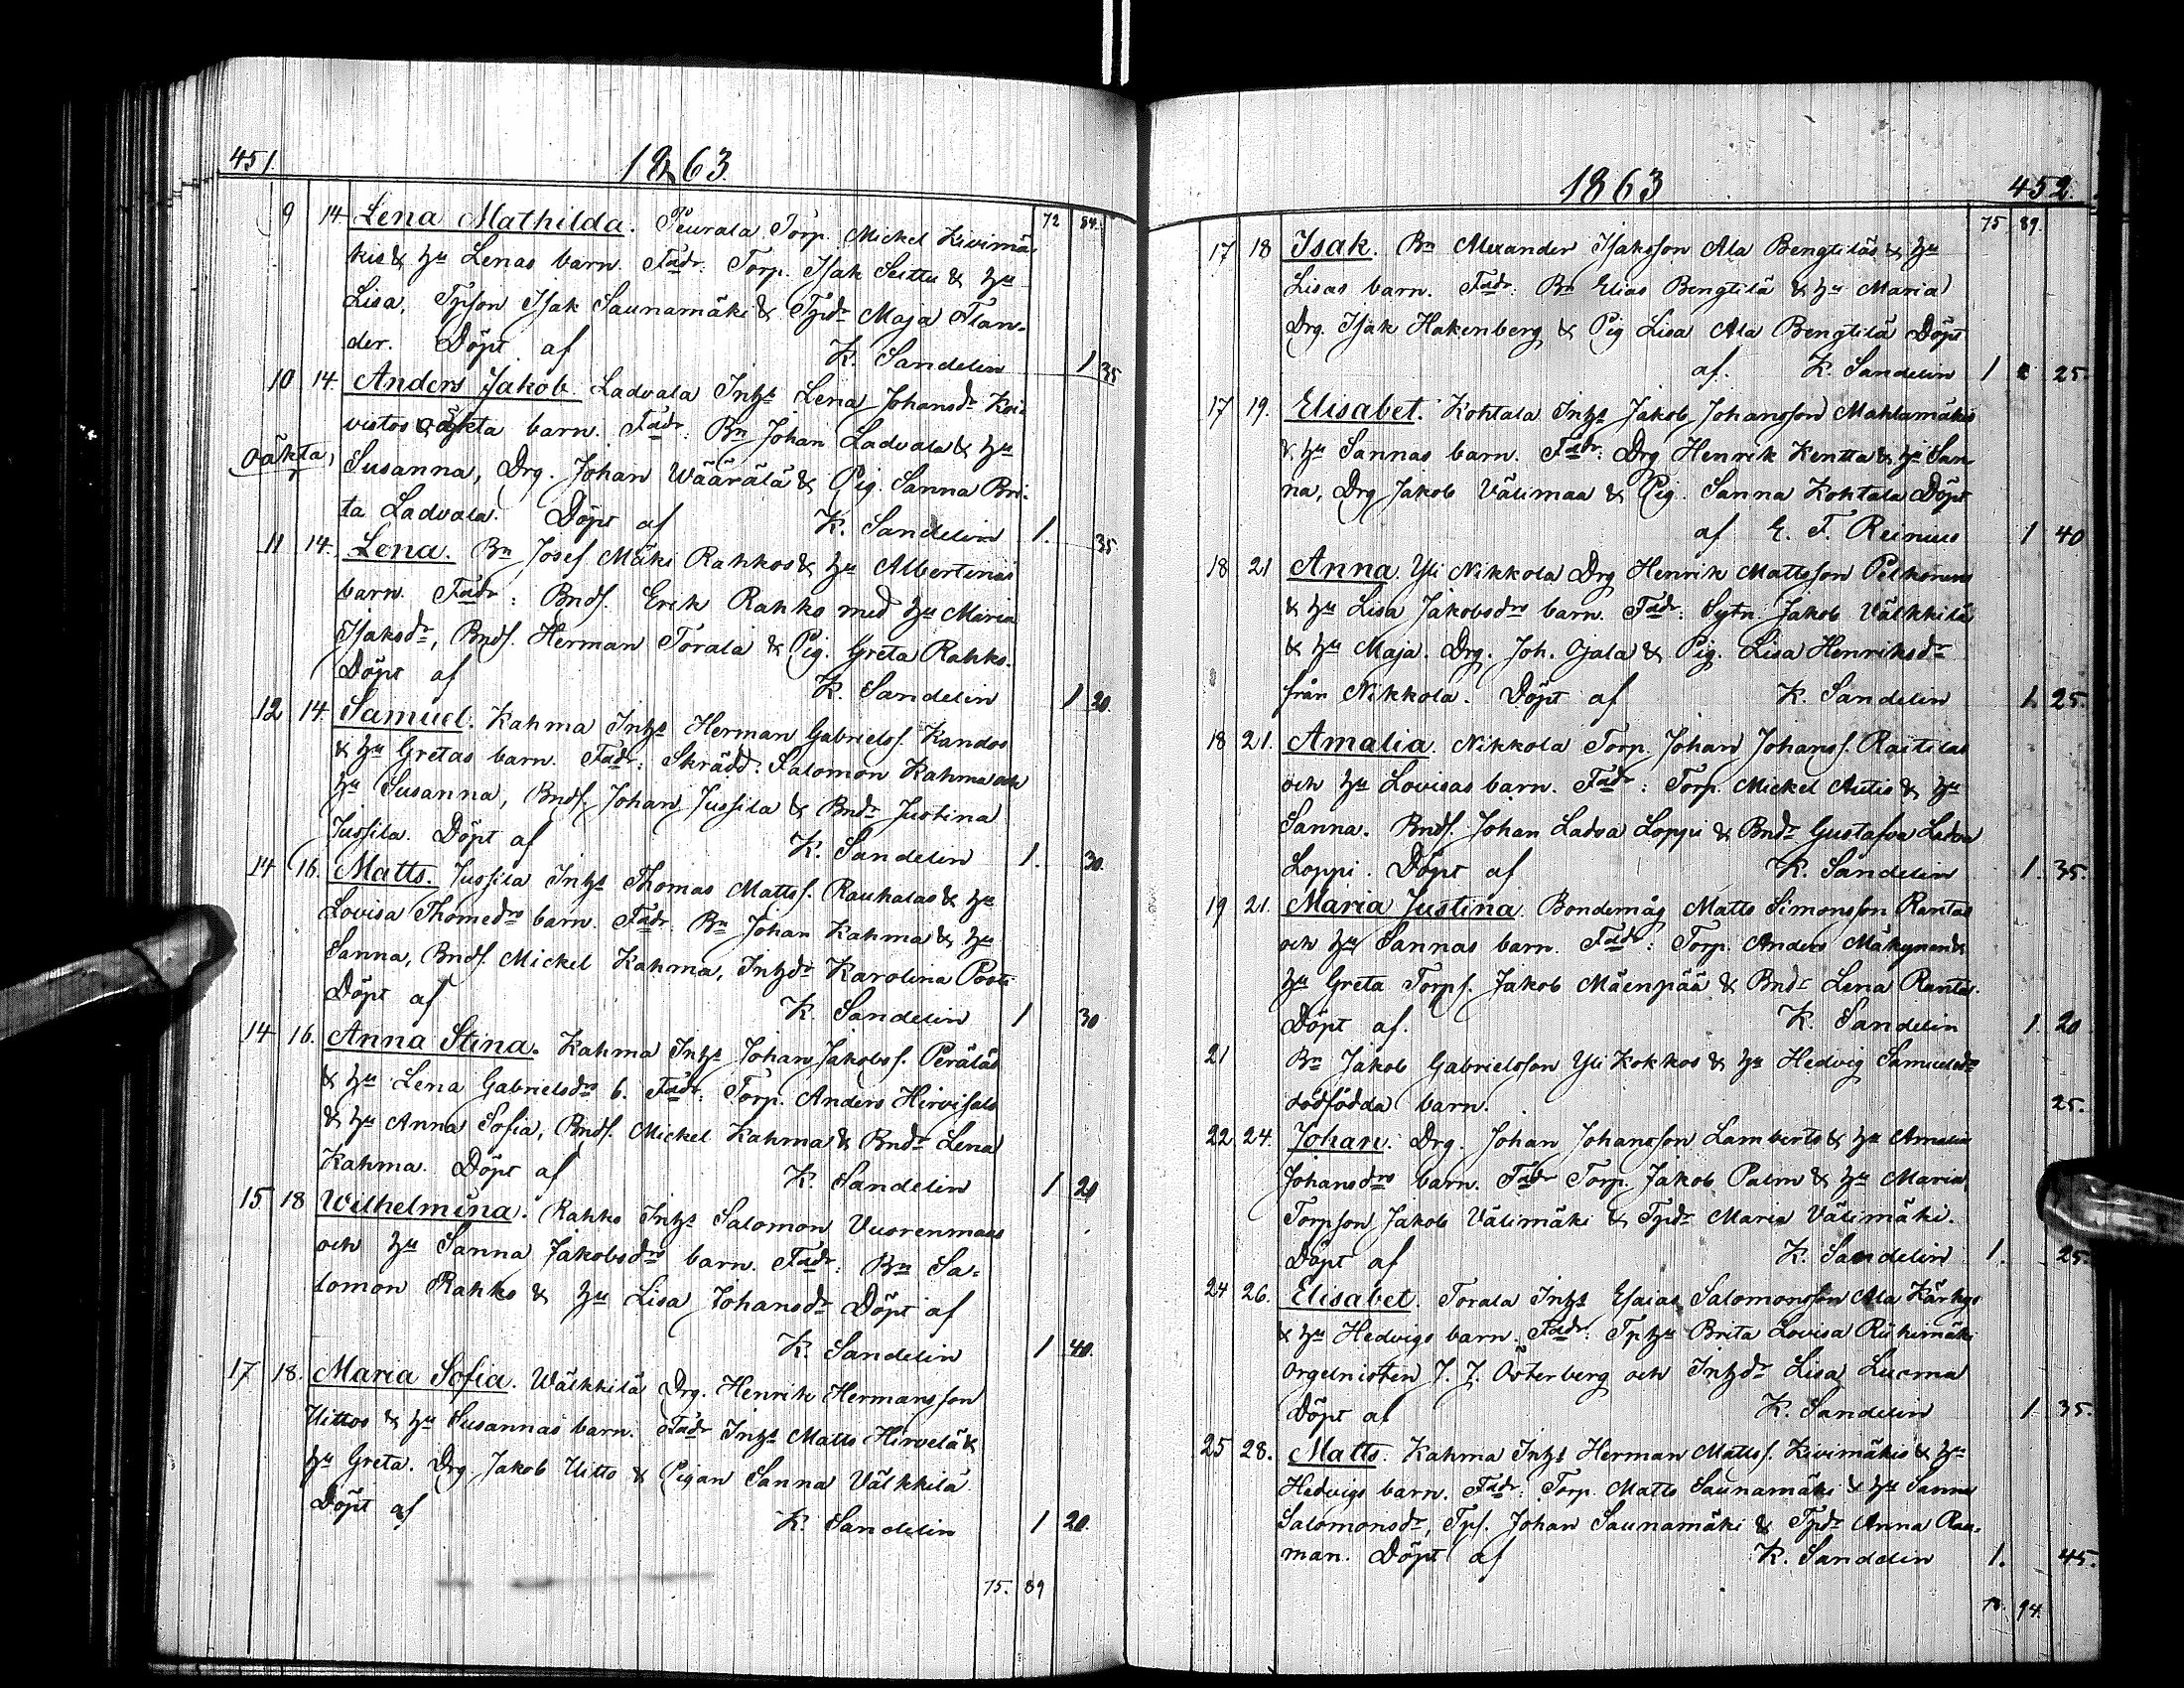 451. 1863.
72 84.
9 14. Lena Mathilda. Peurala Torp. Mickel Kivimä-
kis & hu Lenas barn. Fadr: Torp. Isak Seittu & hu
Lisa, Tpson Isak Saunamäki & Tpdr Maja Flan-
der. Döpt af K. Sandelin 1 35
10 14. Anders Jakob. Ladvala Inhs Lena Johansdr Koi-
vistos oäkta barn. Fadr: Bn Johan Ladvala & hu
oäkta, Susanna, Drg. Johan Wäärälä & Pig. Sanna Bri-
ta Ladvala. Döpt af K. Sandelin 1. 35
11 14. Lena. Bn Josef Mäki Rahkos & hu Albertinas
barn. Fadr: Bnds. Erik Rahko med hu Maria
Isaksdr, Bnds. Herman Torala & Pig. Greta Rahko.
Döpt af K. Sandelin 1 20.
12 14. Samuel. Kahma Inhs Herman Gabrielss. Kandos
& hu Gretas barn. Fadr: Skrädd. Salomon Kahma och
hu Susanna, Bnds. Johan Jussila & Bndr Justina
Jussila. Döpt af K. Sandelin 1. 30.
14 16. Matts. Jussila Inhs Thomas Mattss. Rauhalas & hu
Lovisa Thomedrs barn. Fadr: Bn Johan Kahma & hu
Sanna, Bnds. Mickel Kahma, Inhdr Karolina Posti
Döpt af K. Sandelin 1 30
14 16. Anna Stina. Kahma Inhs Johan Jakobss. Peräläs
& hu Lena Gabrielsdrs b. Fadr: Torp. Anders Hirvisalo
& hu Anna Sofia, Bnds. Mickel Kahma & Bndr Lena
Kahma. Döpt af K. Sandelin 1 20
15 18 Wilhelmina. Rahko Inhs Salomon Vuorenmaas
och hu Sanna Jakobsdrs barn. Fadr: Bn Sa-
lomon Rahko & hu Lisa Johansdr Döpt af
K. Sandelin 1 40.
17 18. Maria Sofia. Wälkkilä Drg. Henrik Hermansson
Uittos & hu Susannas barn. Fadr Inhs Matts Hirvelä &
hu Greta. Drg Jakob Uitto & Pigan Sanna Välkkilä
Döpt af K. Sandelin 1 20.
75. 89
1863 452.
75 89.
17 18 Isak. Bn Alexander Isaksson Ala Bengtiläs & hu
Lisas barn. Fadr: Bn Elias Bengtilä & hu Maria
Drg. Isak Hakenberg & Pig Lisa Ala Bengtilä Döpt
af. K. Sandelin 1 25.
17 19. Elisabet. Kohtala Inhs Jakob Johansson Mahlamäkis
& hu Sannas barn. Fadr: Drg Henrik Kentta & hu San-
na, Drg Jakob Välimaa & Pig. Sanna Kohtala Döpt
af E. F. Reinius 1 40
18 21 Anna. Yli Nikkola Drg Henrik Mattsson Pelkonens
& hu Lisa Jakobsdrs barn. Fadr: Sytn. Jakob Välkkilä
& hu Maja. Drg. Joh. Ojala & Pig. Lisa Henriksdr
från Nikkola. Döpt af K. Sandelin 1. 25.
18 21. Amalia. Nikkola Torp. Johan Johanss. Rastilas
och hu Lovisas barn. Fadr: Torp. Mickel Autio & hu
Sanna. Bnds. Johan Ladva Loppi & Bndr Gustafva Ladva
Loppi. Döpt af K. Sandelin 1. 35.
19 21. Maria Justina. Bondemåg Matts Simonsson Rantas
och hu Sannas barn. Fadr: Torp. Anders Mäkynen &
hu Greta Torps. Jakob Mäenpää & Bndr Lena Ranta.
Döpt af. K. Sandelin 1 20
21 Bn Jakob Gabrielsson Yli Kokkos & hu Hedvig Samuelsdrs
dödfödda barn. 25.
22 24. Johan. Drg. Johan Johansson Lamberts & hu Amalia
Johansdrs barn. Fadr Torp. Jakob Palm & hu Maria,
Torpson Jakob Välimäki & Tpdr Maria Välimäki.
Döpt af K. Sandelin 1. 25.
24 26. Elisabet. Torala Inhs Esaias Salomonsson Ala Kärkys
& hu Hedvigs barn. Fadr: Tphu Brita Lovisa Riihimäki
orgelnisten J. J. Österberg och Inhdr Lisa Lucma
Döpt af K. Sandelin 1. 35.
25 28. Matts. Kahma Inhs Herman Mattss. Kivimäkis & hu
Hedvigs barn. Fadr: Torp. Matts Saunamäki & hu Sanna
Salomonsdr, Tps. Johan Saunamäki & Tpdr Anna Rau-
man. Döpt af K. Sandelin 1. 45.
94.